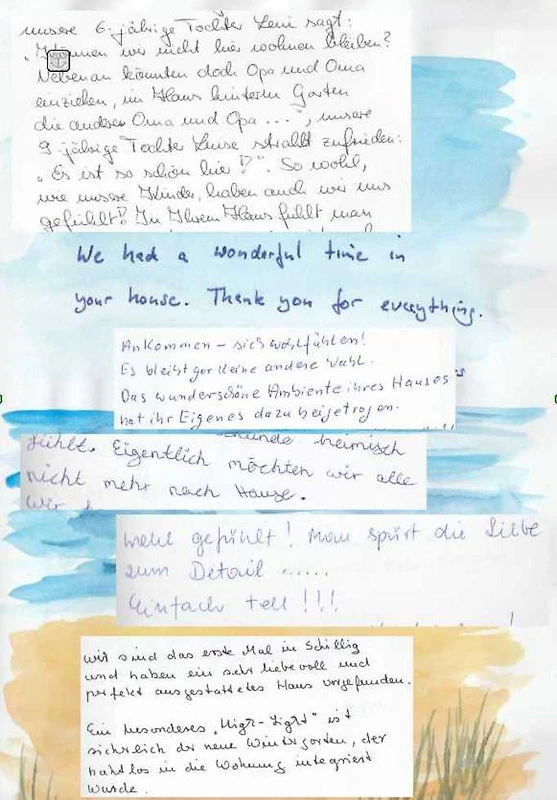 unsere 6-jährige Tochter Leni sagt:
"Können wir nicht hier wohnen bleiben?
Nebenan könnten doch Opa und Oma
einziehen, im Haus hinterm Garten
die anderen Oma und Opa ...", unsere
9-jährige Tochter Luise strahlt zufrieden:
"Es ist so schön hier!". So wohl,
wie unsere Kinder, haben auch wir uns
gefühlt! In Ihrem Haus fühlt man
We had a wonderful time in
your house. Thank you for everything.
Ankommen – sich wohlfühlen!
Es bleibt gar keine andere Wahl.
Das wunderschöne Ambiente ihres Hauses
hat ihr Eigenes dazu beigetragen.
fühlt. heimisch
Eigentlich möchten wir alle
nicht mehr nach Hause.
wir
wohl gefühlt! Man spürt die Liebe
zum Detail ......
Einfach toll!!!
Wir sind das erste Mal in Schillig
und haben ein sehr liebevoll und
perfekt ausgestattetes Haus vorgefunden.
Ein besonderes "High-Light" ist
sicherlich der neue Wintergarten, der
nahtlos in die Wohnung integriert
wurde.